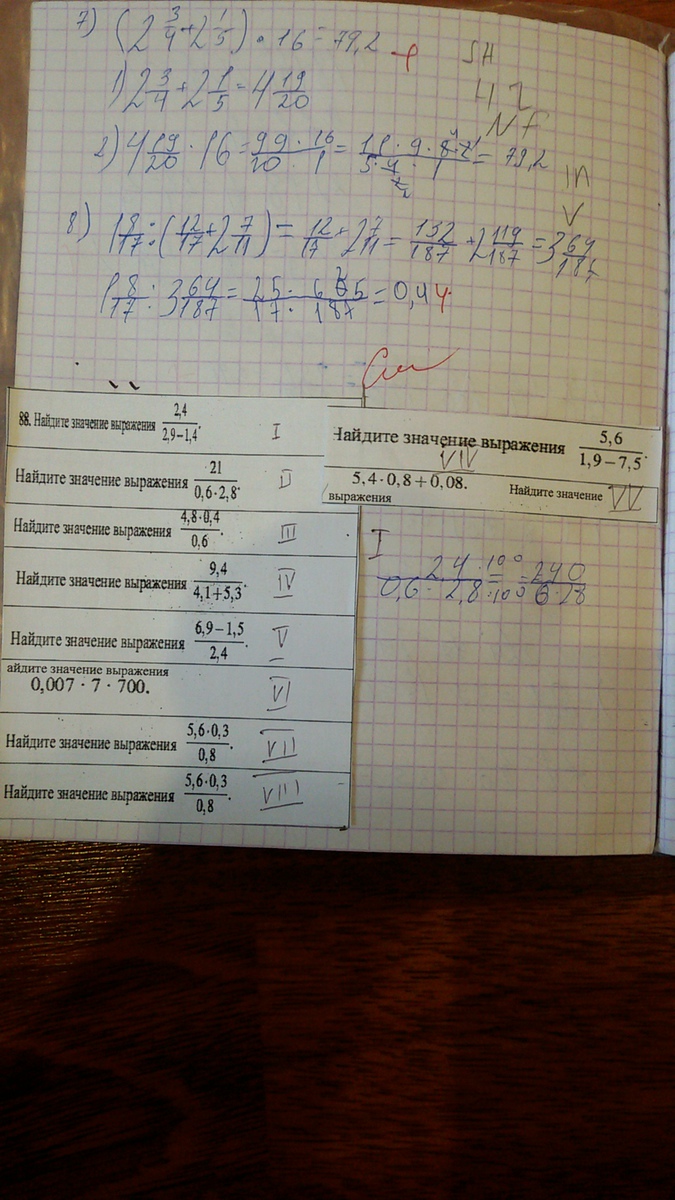 7) (2 3/4 + 2 1/5) · 16 = 79,2
1) 2 3/4 + 2 1/5 = 4 19/20
2) 4 19/20 · 16 = 99 · 16 / 20 · 1 = 11 · 9 · 8 · 2 / 5 · 4 · 1 = 79,2
8) 1 8/17 : (12/17 + 2 7/11) = 12/17 + 2 7/11 = 132/187 + 2 119/187 = 3 64/187
1 8/17 : 3 64/187 = 25 · 625 / 17 · 187 = 0,44
88. Найдите значение выражения 2,4 / 2,9−1,4. I
Найдите значение выражения 21 / 0,6·2,8. II
Найдите значение выражения 4,8·0,4 / 0,6. III
Найдите значение выражения 9,4 / 4,1+5,3. IV
Найдите значение выражения 6,9−1,5 / 2,4. V
айдите значение выражения
0,007 · 7 · 700. VI
Найдите значение выражения 5,6·0,3 / 0,8. VII
Найдите значение выражения 5,6·0,3 / 0,8. VIII
Найдите значение выражения 5,6 / 1,9−7,5.
VIV
5,4·0,8+0,08. Найдите значение VV
выражения
I
2,4 · 100 / 0,6 · 2,8 · 100 = 240 / 6·28